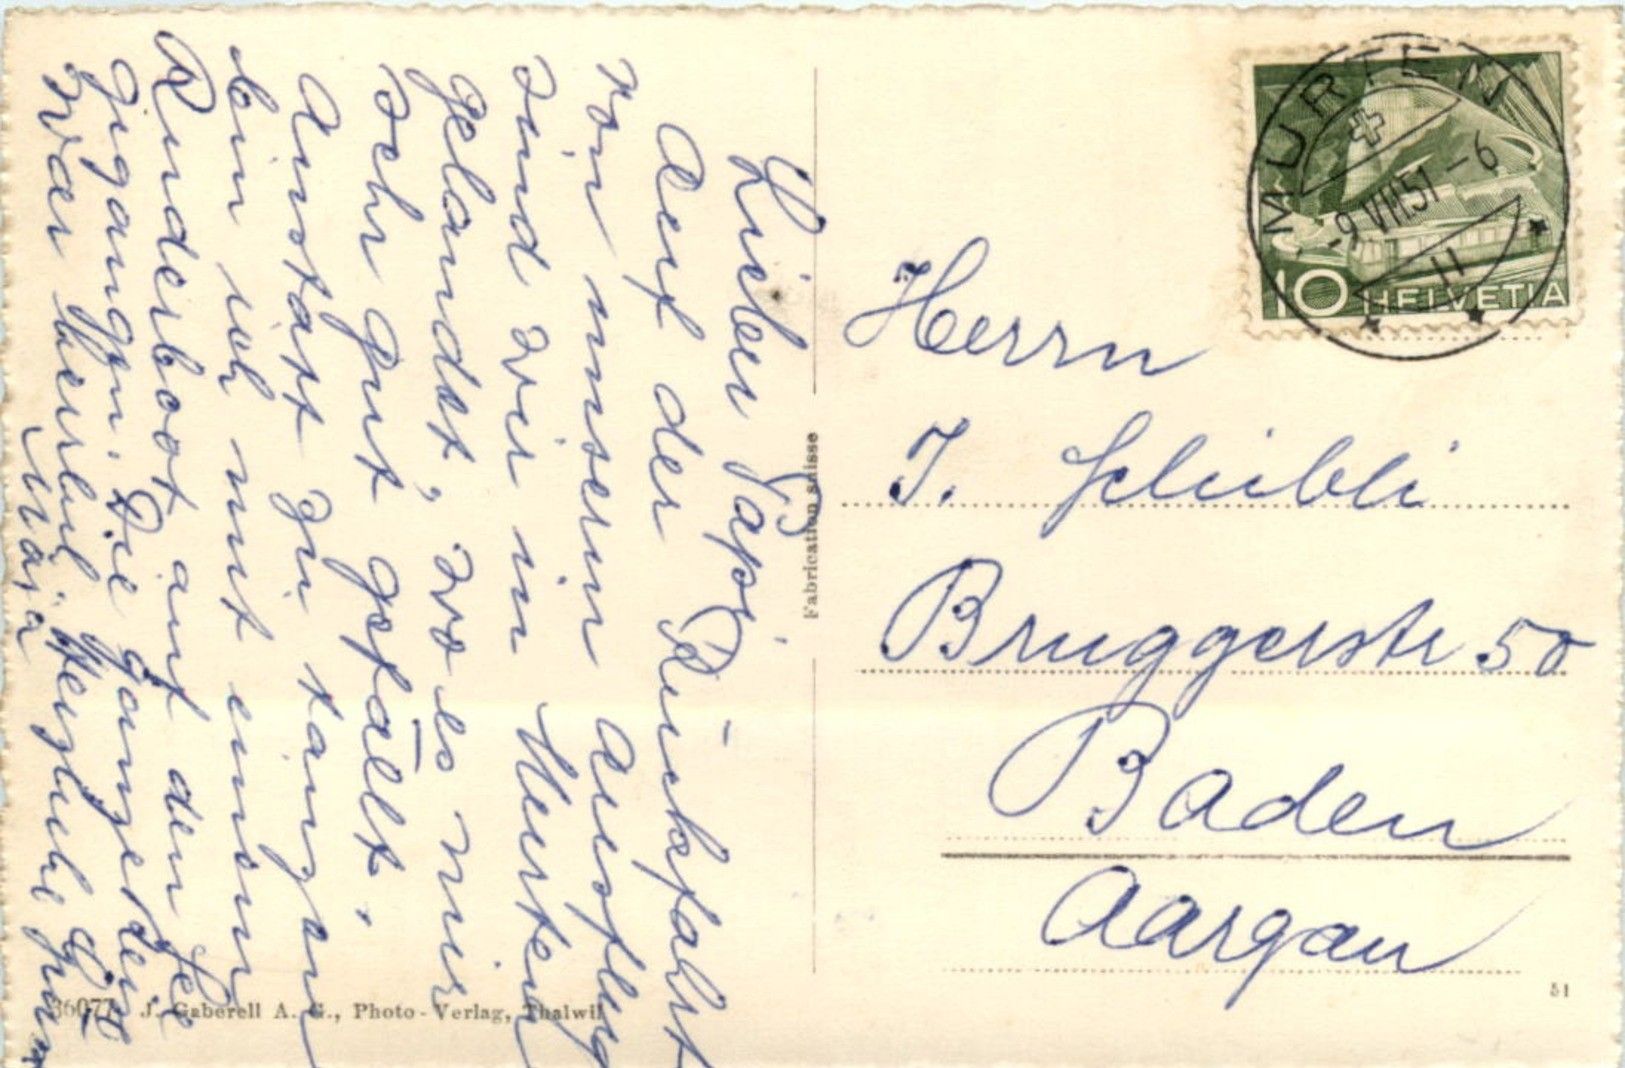 Lieber Papi
Auf der Rückfahrt
von unserm Ausflug
sind wir in Murten
gelandet, wo es mir
sehr gut gefällt.
Anstatt zu tanzen
bin ich mit einem
Ruderboot auf den See
gigangen. Die ganze
war herrlich Herzliche
Maja
Herrn
J. Schibli
Bruggerstr 50
Baden
Aargau
MURTEN
-9.VIII.51-6
11
10 HELVETIA
Fabrication suisse
36077 J. Gaberell A. G., Photo-Verlag, Thalwil
51